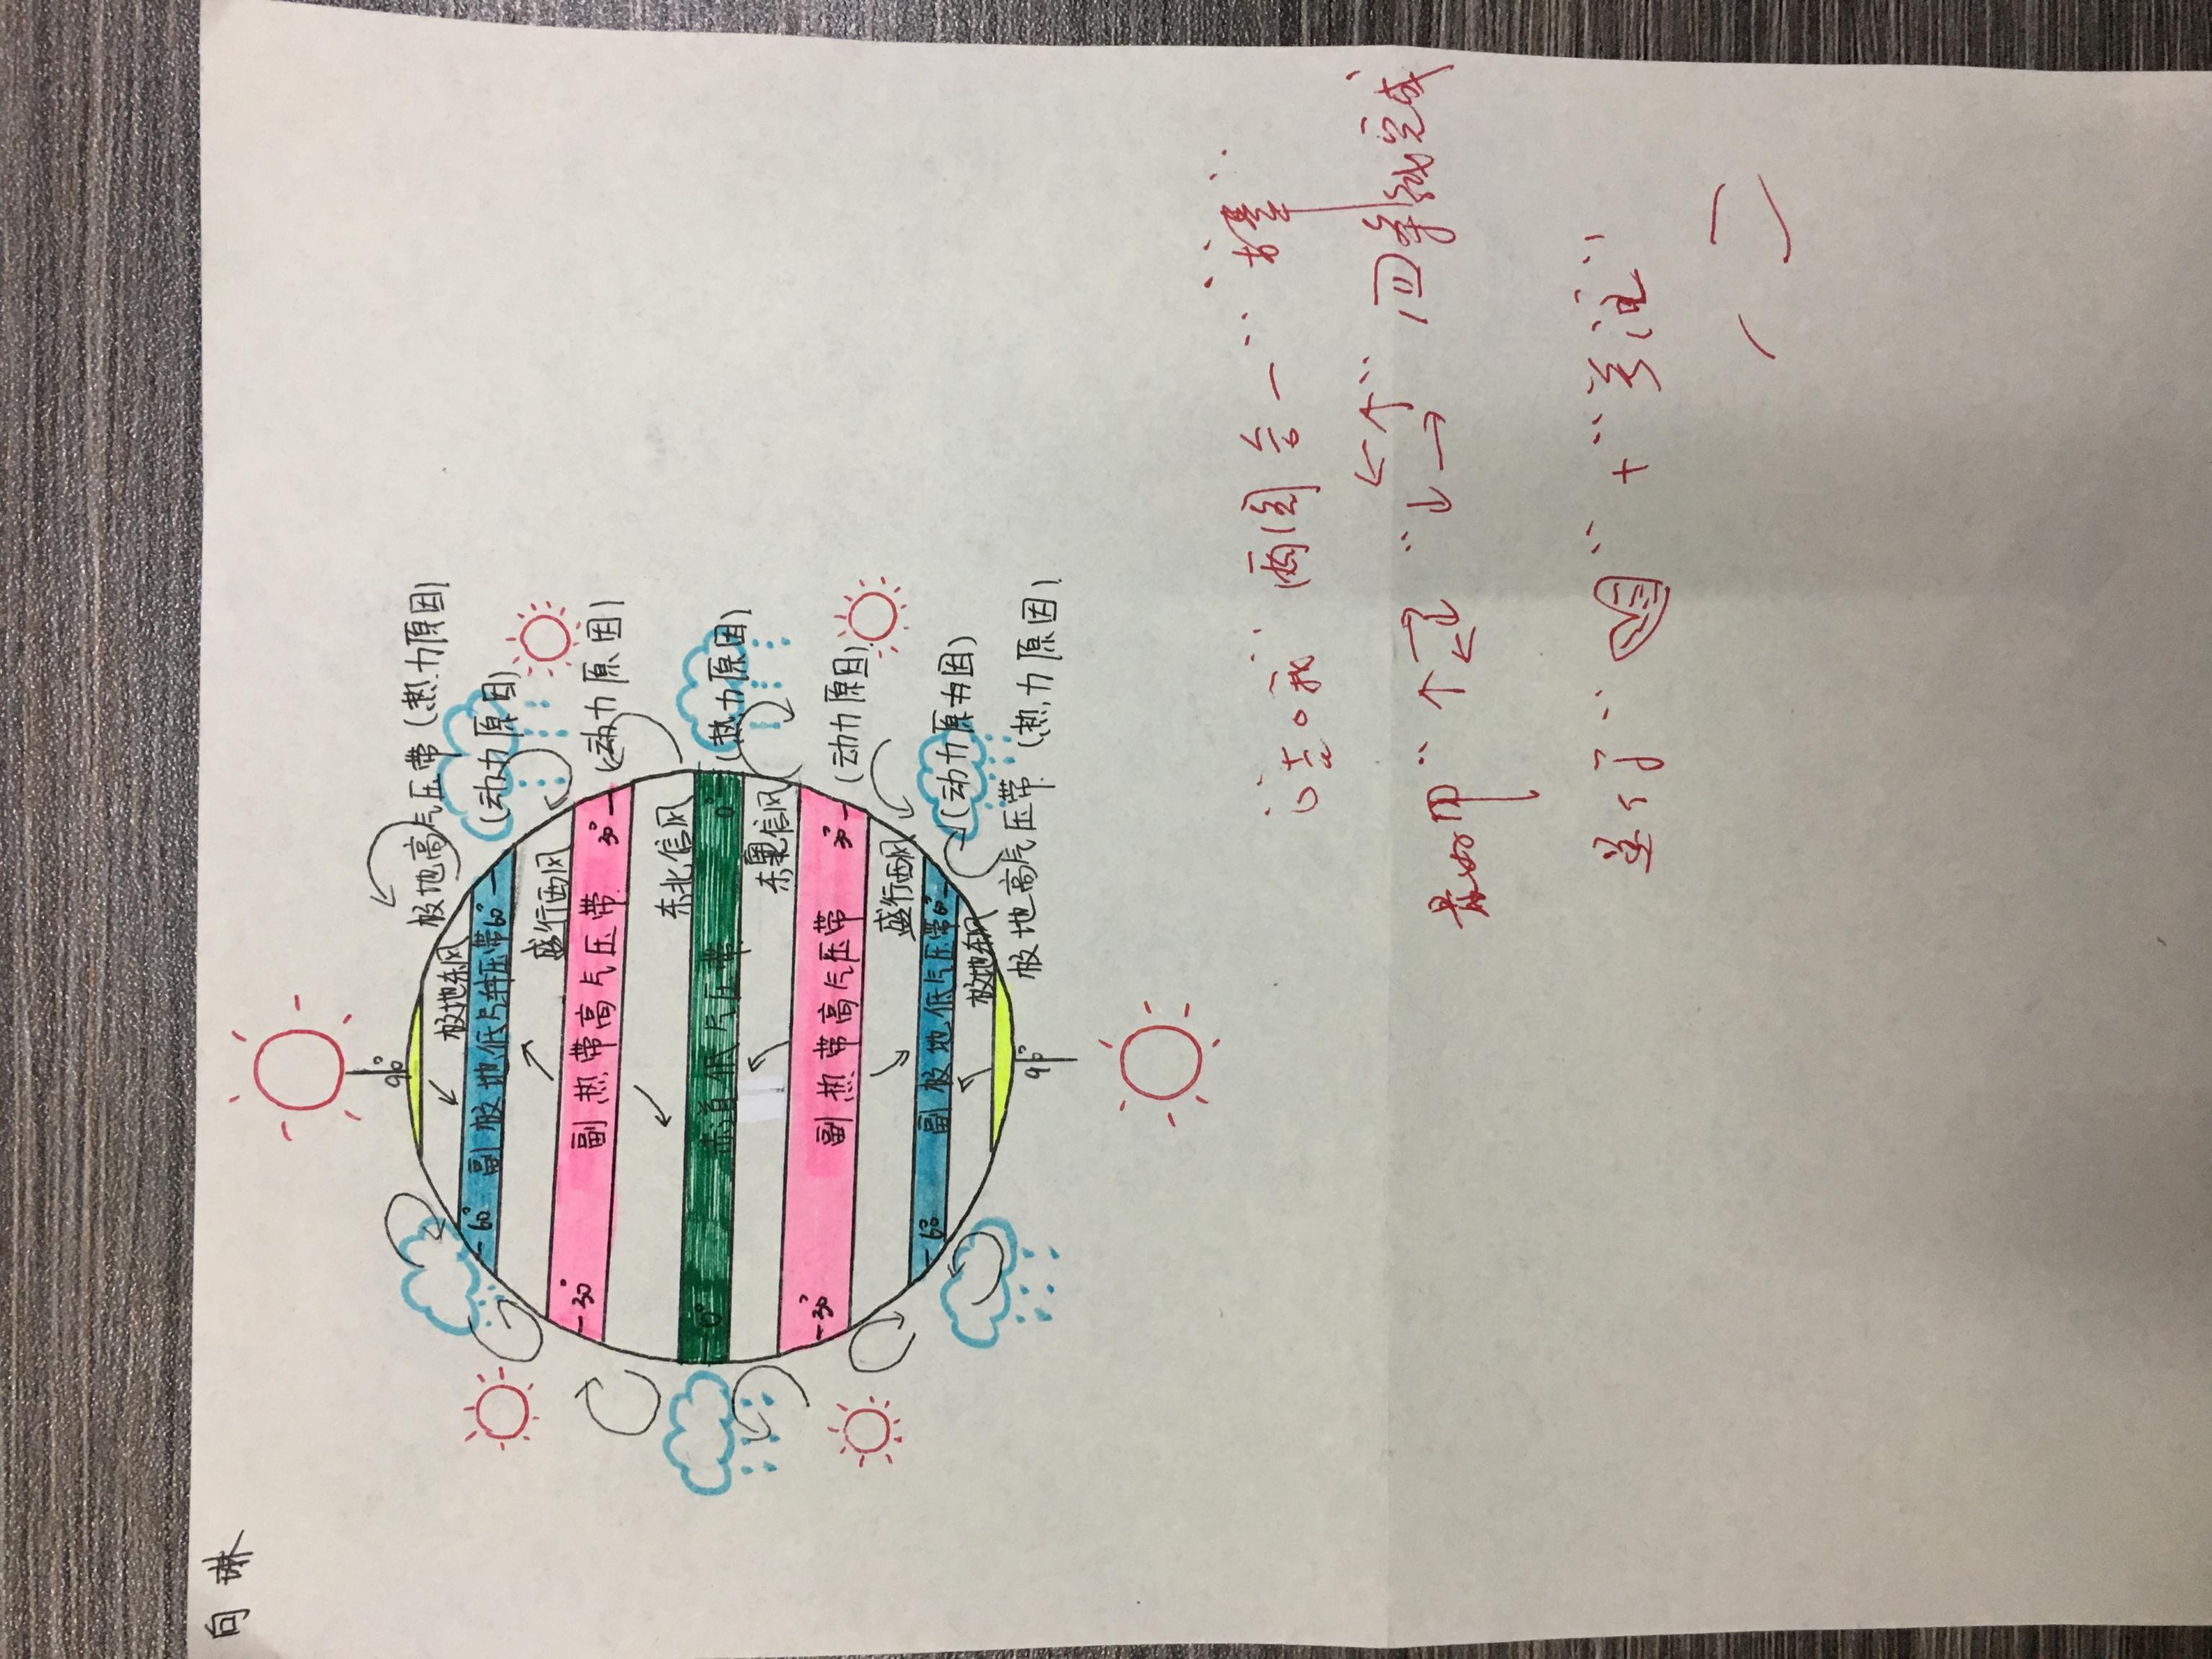 向琳
90°
极地高气压带(热力原因)
极地东风
60° 副极地低气压带60° (动力原因)
盛行西风
30° 副热带高气压带 30° (动力原因)
东北信风
0° 赤道低气压带 0° (热力原因)
东南信风
30° 副热带高气压带 30° (动力原因)
盛行西风
60° 副极地低气压带60° (动力原因)
极地东风
极地高气压带(热力原因)
90°
注意 两图合一
四条线完成
最好用
并行 + "关注"